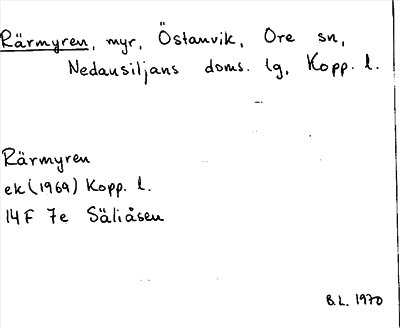 Rärmyren, myr, Östanvik, Ore sn,
Nedansiljans doms. lg, Kopp. l.
Rärmyren
ek (1969) Kopp. l.
14F 7e Säliåsen
B.L. 1970